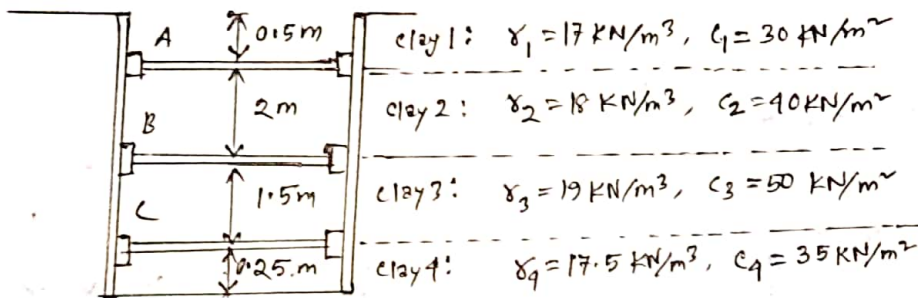 A 0.5m clay 1: γ₁ = 17 KN/m³, C₁ = 30 KN/m²
B 2m clay 2: γ₂ = 18 KN/m³, C₂ = 40 KN/m²
C 1.5m clay 3: γ₃ = 19 KN/m³, C₃ = 50 KN/m²
0.25.m clay 4: γ₄ = 17.5 KN/m³, C₄ = 35 KN/m²